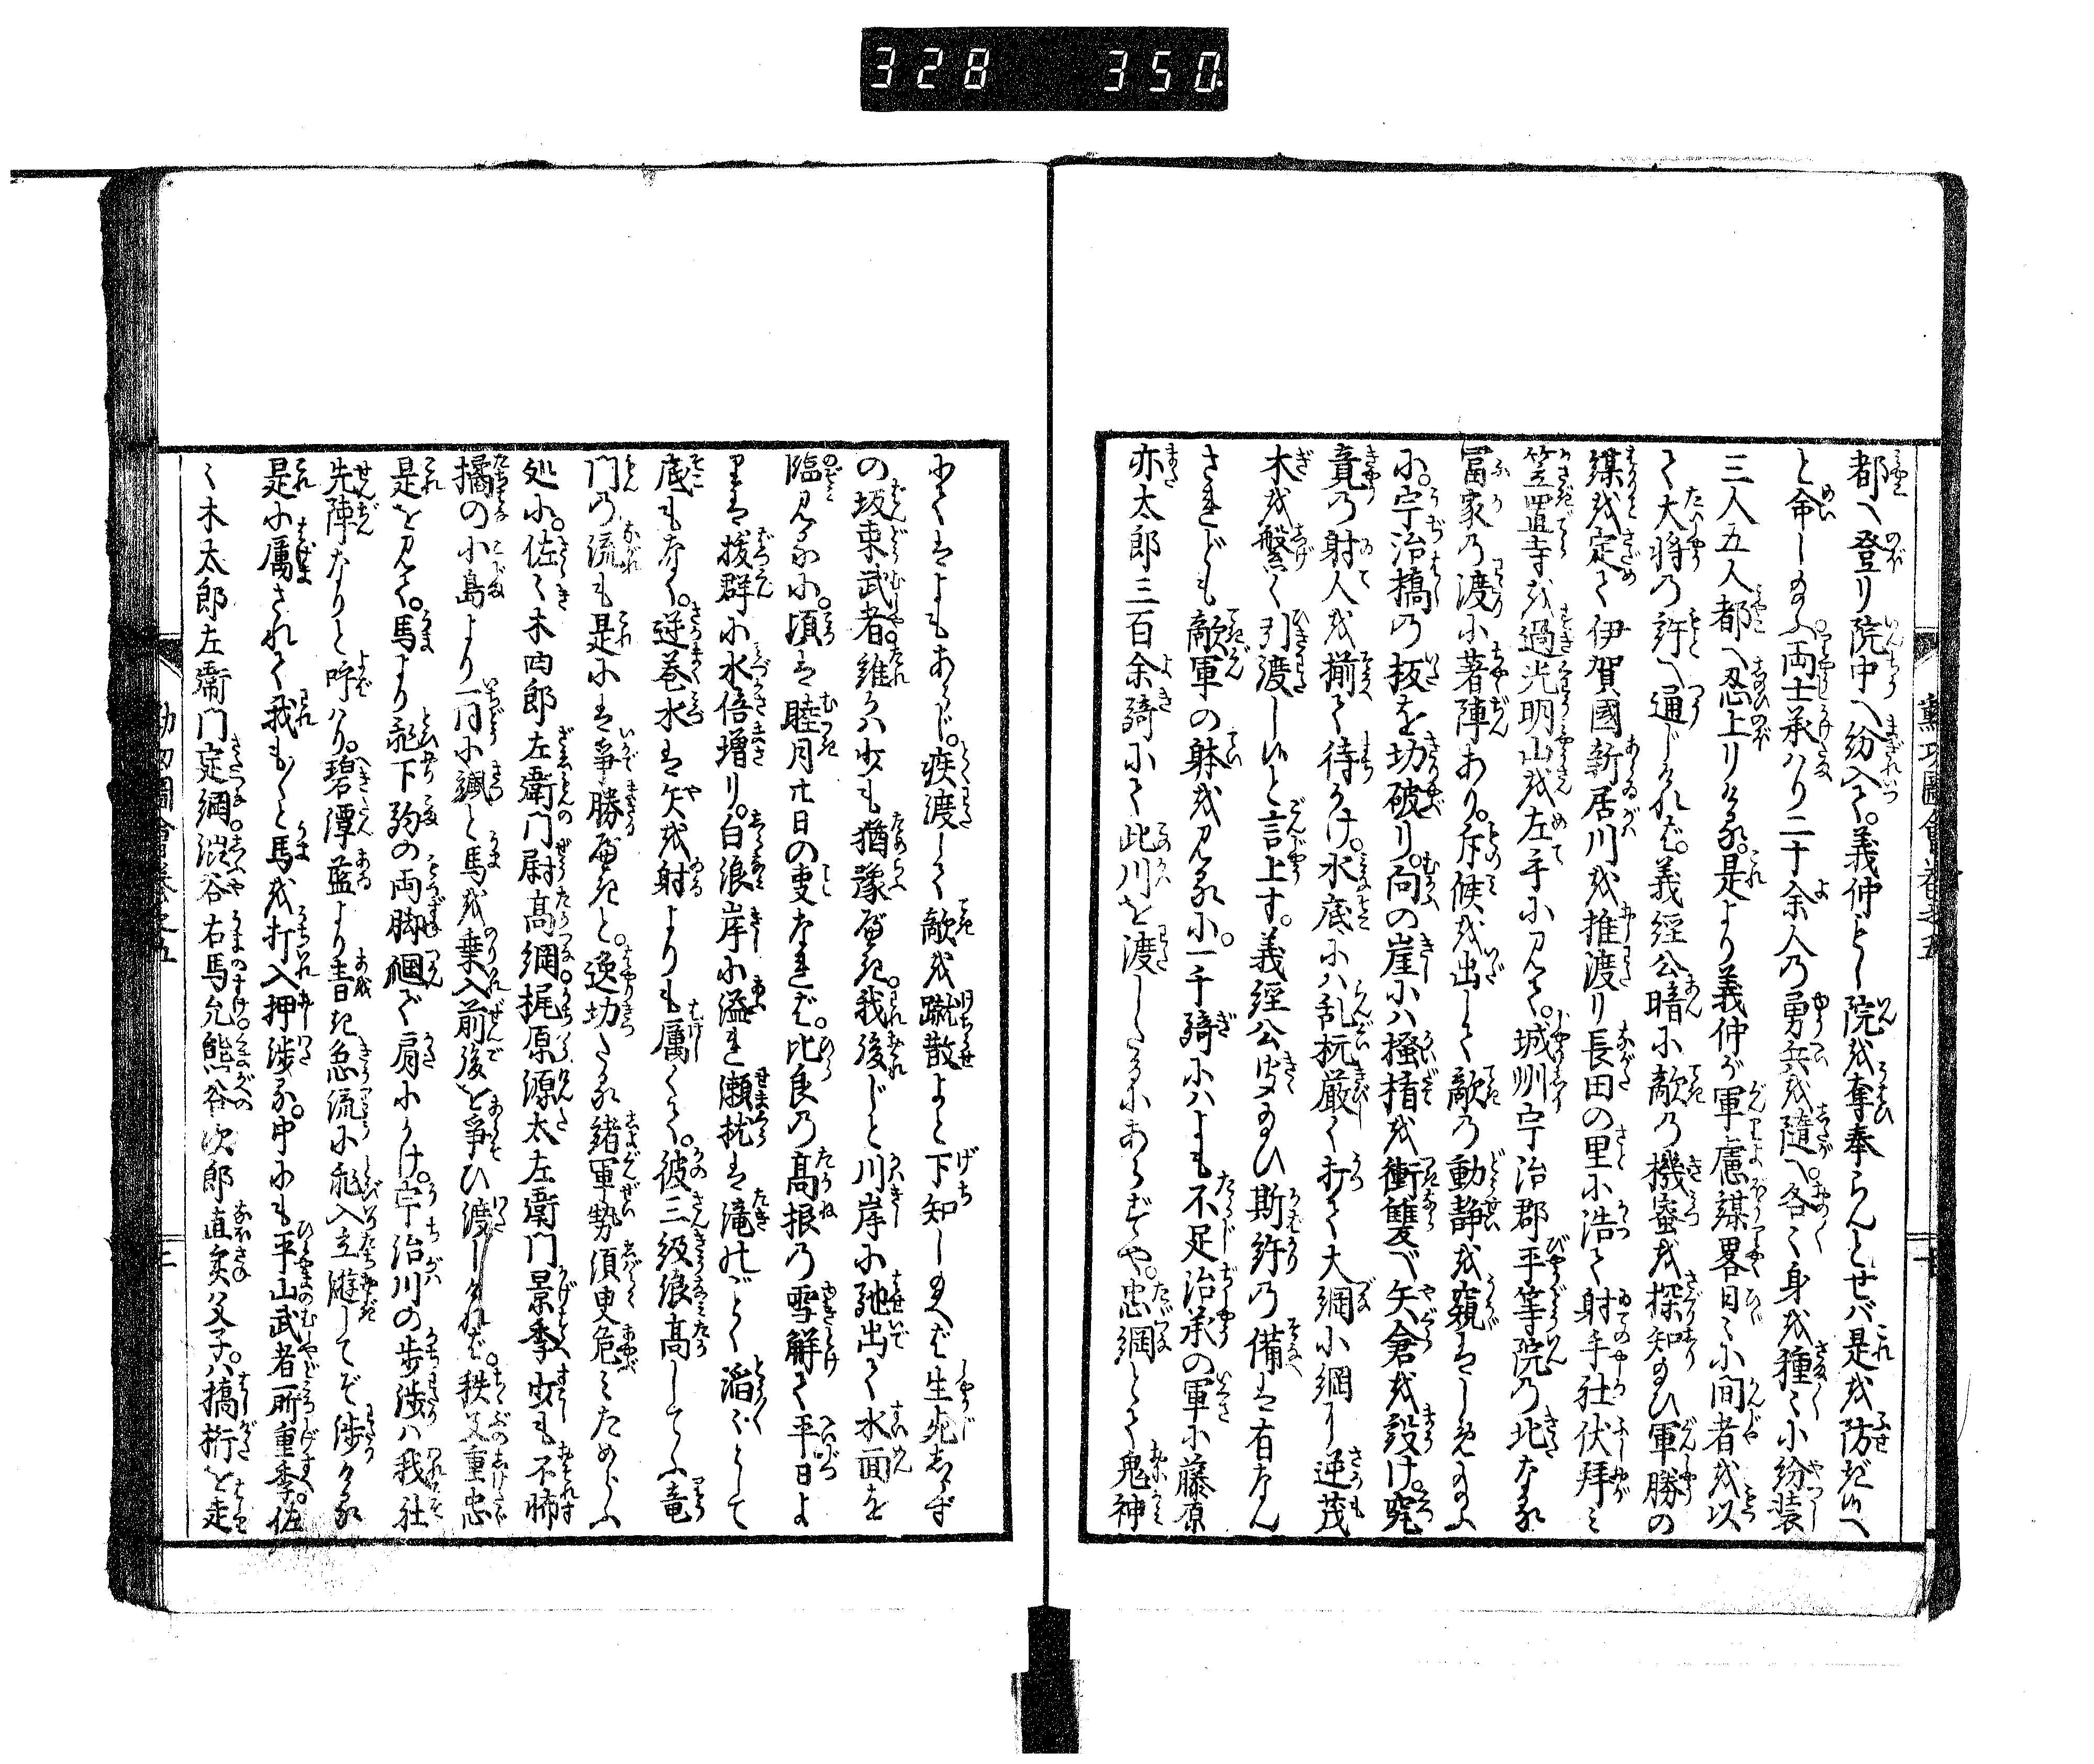 328 350
都へ登り院中へ紛入て。義仲もし院を奪奉らんとせバ是を防ぎ候へ
と命し給ふ。両士承ハり二十余人の勇兵を隨へ。各〻身を種〻に紛装
三人五人都へ忍上りける。是より義仲が軍慮謀畧日〻に間者を以
て大将の許へ通じければ。義経公暗に敵の機密を探知給ひ軍勝の
謀を定て伊賀國新居川を推渡り長田の里に浩て射手社伏拜ミ
笠置寺を過光明山を左手に見て。城州宇治郡平等院の北なる
冨家の渡に著陣あり。斥候を出して敵の動静を窺はしめ給ふ
に。宇治橋の板を切破り。向の崖にハ掻楯を衝雙べ矢倉を設け。究
竟の射人を揃て待かけ。水底にハ乱杭厳く打て大綱小綱し逆茂
木を繋て引渡し候と言上す。義経公聞給ひ斯許の備は有なん
されども敵軍の躰を見るに。一千騎にハよも不足治承の軍に藤原
亦太郎三百余騎にて此川を渡したるにあらずや。忠綱とて鬼神
にてはよもあらじ。疾渡して敵を蹴散よと下知し給へば生死しらず
の坂東武者誰かハ少も猶豫べき。我後じと川岸に馳出て水面を
臨見るに。頃は睦月廿日の叓なれば。比良の高根の雪解て平日よ
りは拔群に水倍増り。白浪岸に溢れ瀬枕は滝のごとく滔〻として
底もなく。逆巻水は矢を射よりも厲くて。彼三級浪高してふ竜
門の流も是には爭勝べきと。逸切たる諸軍勢須臾危ミためらふ
処に。佐〻木四郎左衞門尉高綱。梶原源太左衞門景季少も不怖
橘の小島より一同に颯と馬を乗入前後を爭ひ渡しければ。秩父重忠
是を見て。馬より飛下駒の両脚個で肩にかけ。宇治川の歩渉ハ我社
先陣なりと呼ハり。碧潭藍より青き急流に飛入立游してぞ渉ける
是に属されて我も〱と馬を打入押渉る。中にも平山武者所重季。佐
〻木太郎左衞門定綱。澁谷右馬允熊谷次郎直実父子。ハ橋桁を走